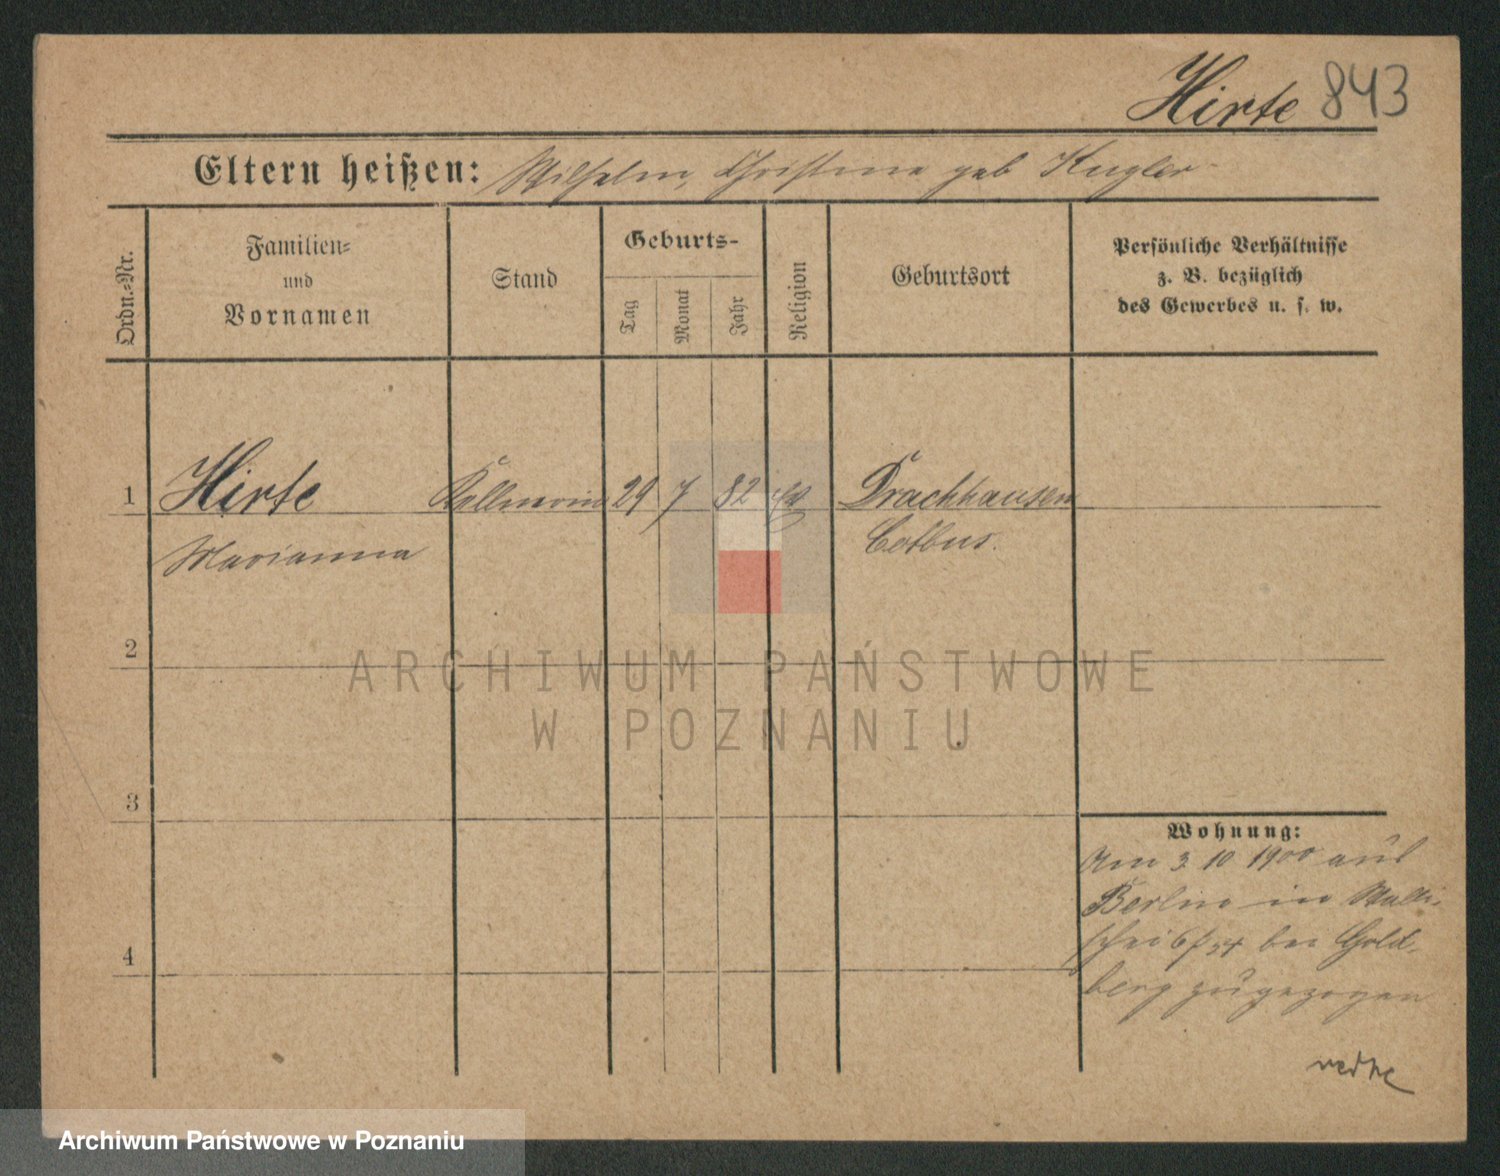 Hirte 843
Eltern heißen: Wilhelm, Christine geb Kugler
Ordn.=Nr.
Familien=
und
Vornamen
Stand
Geburts-
Tag
Monat
Jahr
Religion
Geburtsort
Persönliche Verhältnisse
z. B. bezüglich
des Gewerbes u. s. w.
1 Hirte Kellnerin 29 7 82 Drachhausen
Marianna Cotbus.
2
3
4
Wohnung:
Am 3 10 1900 aus
Berlin in Walli-
schei bei Gold-
berg zugezogen
ARCHIWUM PAŃSTWOWE
W POZNANIU
Archiwum Państwowe w Poznaniu